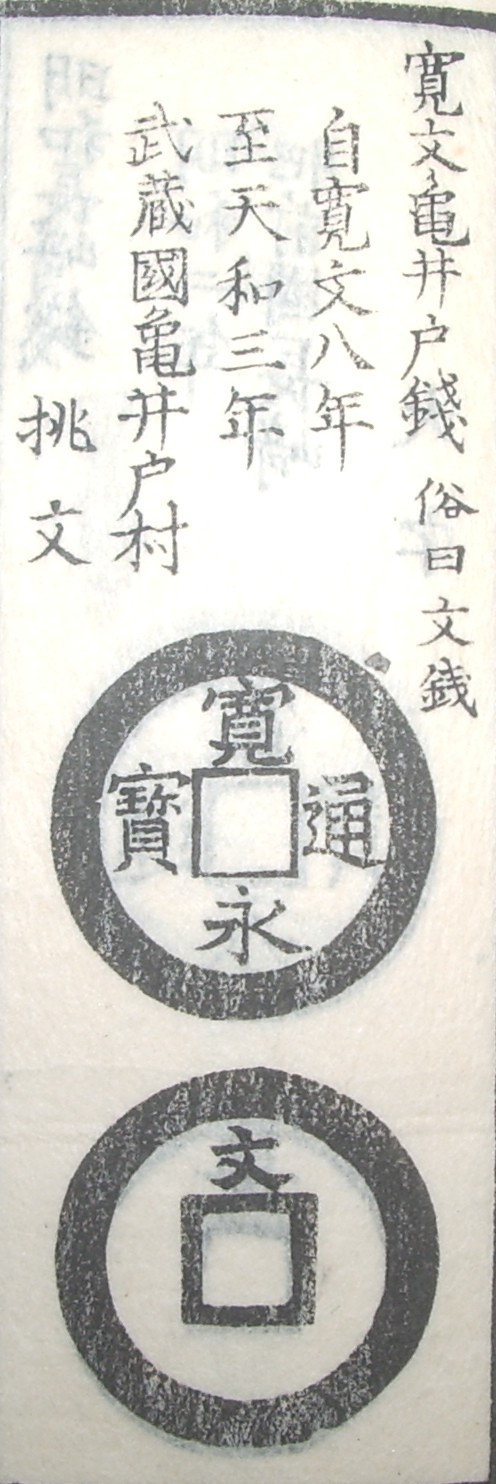 寛文亀井户錢 俗曰文銭
自寛文八年
至天和三年
武蔵國亀井户村
挑文
寛永通寳
文